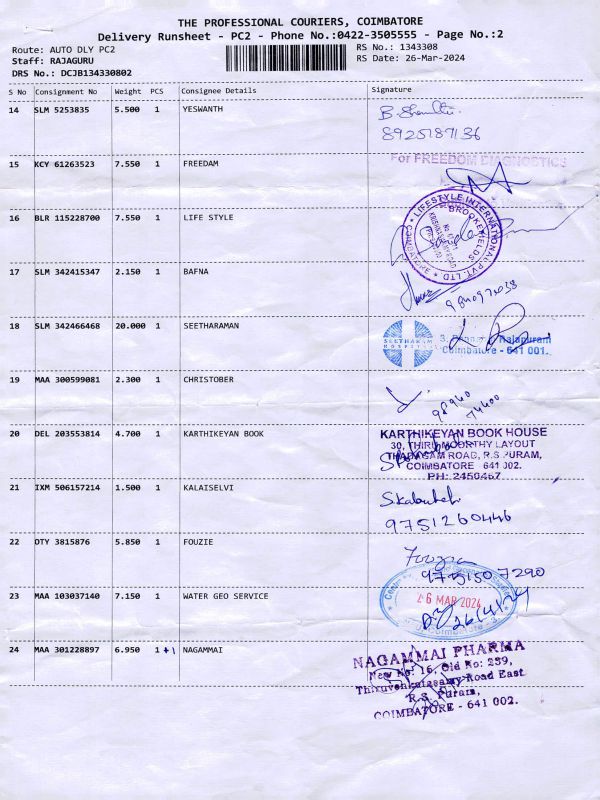 THE PROFESSIONAL COURIERS, COIMBATORE
Delivery Runsheet - PC2 - Phone No.:0422-3505555 - Page No.:2
Route: AUTO DLY PC2 RS No.: 1343308
Staff: RAJAGURU RS Date: 26-Mar-2024
DRS No.: DCJB134330802
S No Consignment No Weight PCS Consignee Details Signature
14 SLM 5253835 5.500 1 YESWANTH
8925187136
15 KCY 61263523 7.550 1 FREEDAM
For FREEDOM DIAGNOSTICS
16 BLR 115228700 7.550 1 LIFE STYLE
LIFESTYLE INTERNATIONAL PVT. LTD. COIMBATORE
BROOKEFIELDS
17 SLM 342415347 2.150 1 BAFNA
18 SLM 342466468 20.000 1 SEETHARAMAN
SEETHARAM HOSPITAL
Coimbatore - 641 001.
19 MAA 300599081 2.300 1 CHRISTOBER
98940
74400
20 DEL 203553814 4.700 1 KARTHIKEYAN BOOK
KARTHIKEYAN BOOK HOUSE
30, THIRUMOORTHY LAYOUT
THADAGAM ROAD, R.S.PURAM,
COIMBATORE - 641 002.
PH: 2450467
21 IXM 506157214 1.500 1 KALAISELVI
9751260446
22 DTY 3815876 5.850 1 FOUZIE
Fouzia
9751507290
23 MAA 103037140 7.150 1 WATER GEO SERVICE
26 MAR 2024
24 MAA 301228897 6.950 1 +1 NAGAMMAI
NAGAMMAI PHARMA
New No: 16, Old No: 239,
Thiruvenkatasamy Road East
R.S. Puram,
COIMBATORE - 641 002.